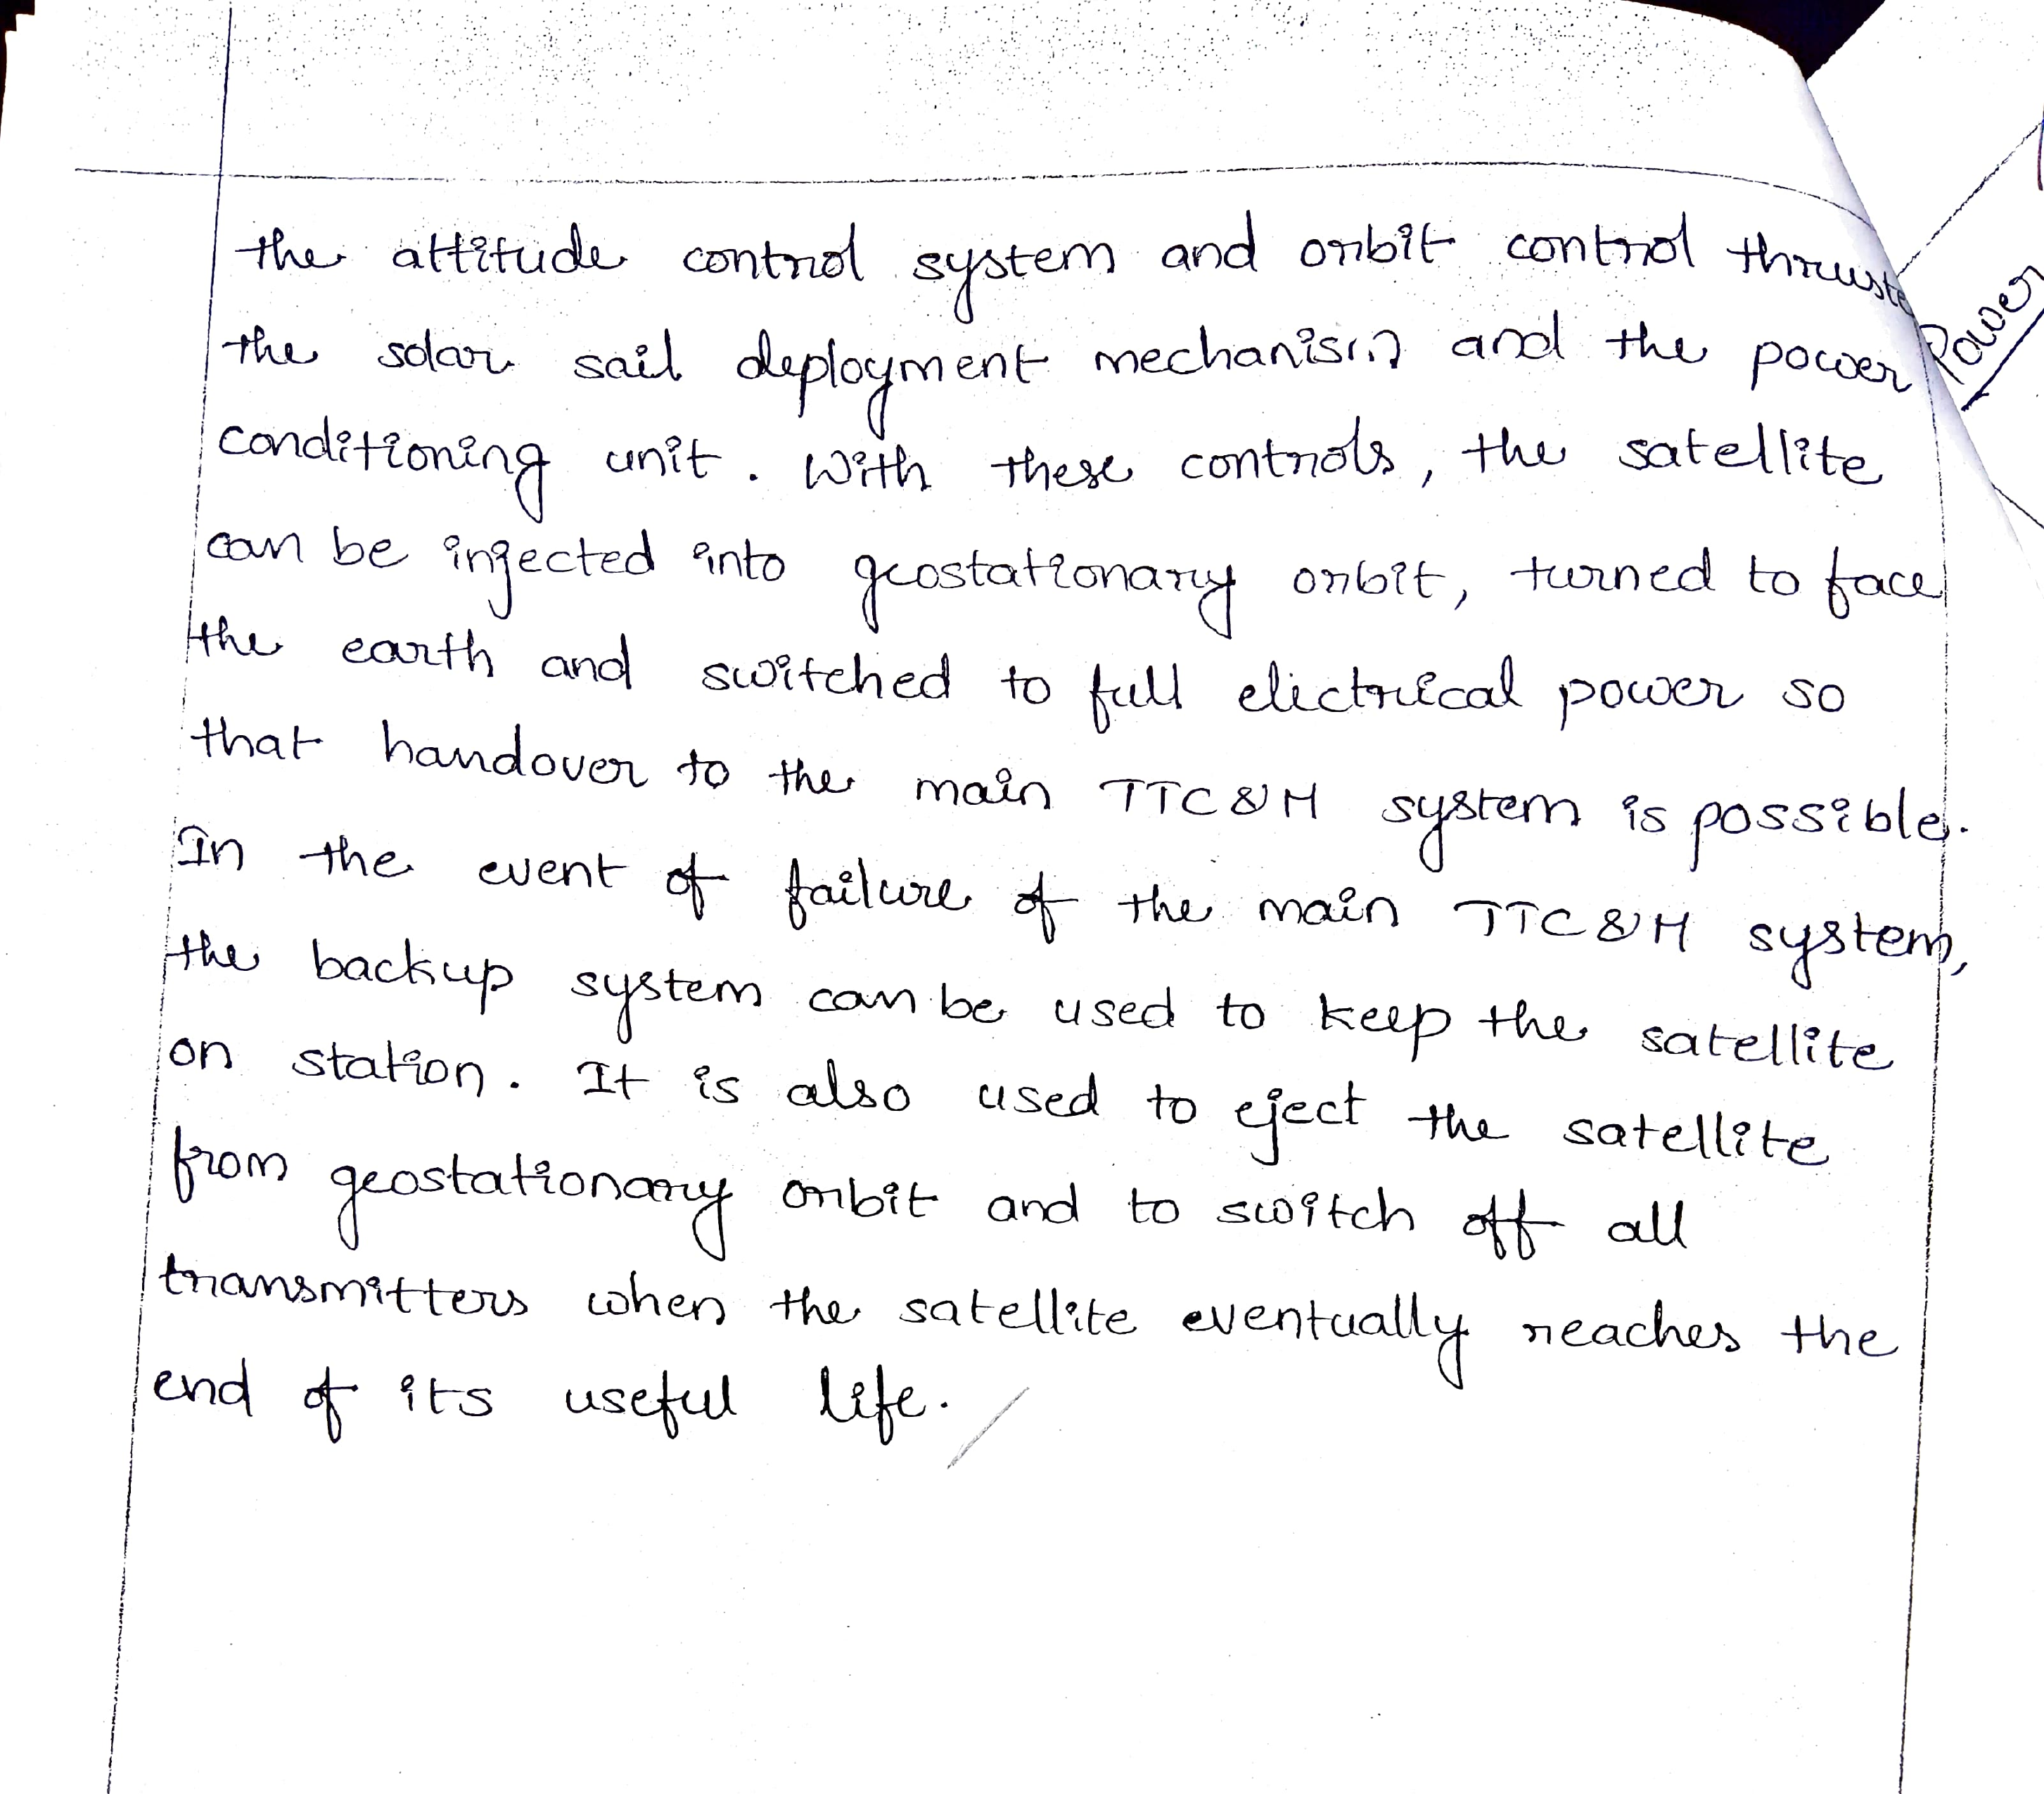 the attitude control system and orbit control thruste
the solar sail deployment mechanism and the power
conditioning unit. With these controls, the satellite
can be injected into geostationary orbit, turned to face
the earth and switched to full electrical power so
that handover to the main TTC&M system is possible.
In the event of failure of the main TTC&M system,
the backup system can be used to keep the satellite
on station. It is also used to eject the satellite
from geostationary orbit and to switch off all
transmitters when the satellite eventually reaches the
end of its useful life.
Power